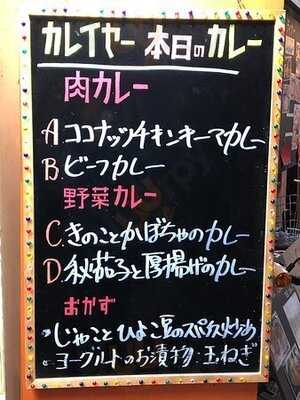 カレイヤー 本日のカレー
肉カレー
A.ココナッツチキンキーマカレー
B.ビーフカレー
野菜カレー
C.きのことかぼちゃのカレー
D.秋茄子と厚揚げのカレー
おかず
じゃことひよこ豆のスパイス炒め
ヨーグルトのお漬物 玉ねぎ